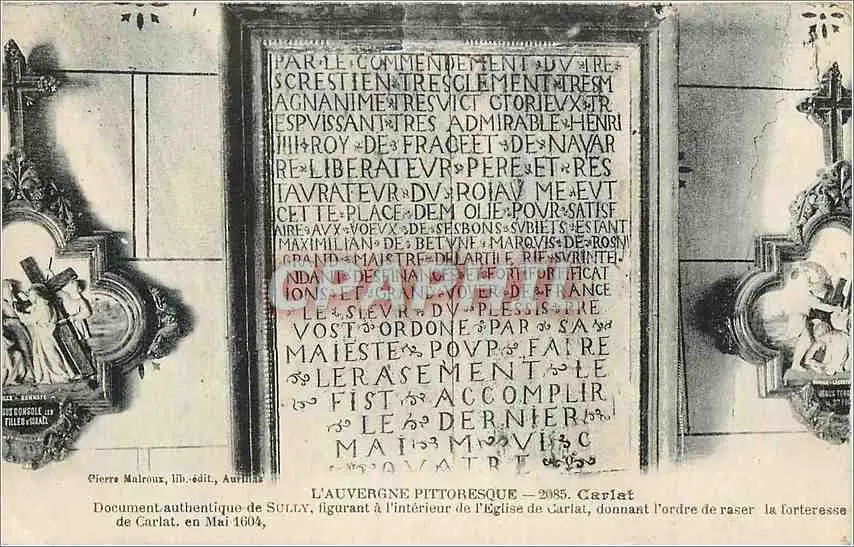 PAR LE COMMENDEMENT DV TRE
SCRESTIEN TRESCLEMENT TRESM
AGNANIME TRESVICTCTORIEVX TR
ESPVISSANT TRES ADMIRABLE HENRI
IIII ROY DE FRACEET DE NAVAR
RE LIBERATEVR PERE ET RES
TAVRATEVR DV ROIAV ME EVT
CETTE PLACE DEM OLIE POVR SATISF
AIRE AVX VOEVX DE SESBONS SVBIETS ESTANT
MAXIMILIAN DE BETVNE MARQVIS DE ROSNI
GRAND MAISTRE DELARTILE RIE SVRINTE
NDANT DES FINANCES ET FORTIFICAT
IONS ET GRAND VOYER DE FRANCE
LE SIEVR DV PLESSIS PRE
VOST ORDONE PAR SA
MAIESTE POVR FAIRE
LERASEMENT LE
FIST ACCOMPLIR
LE DERNIER
MAI M VI C
QVATRE
CPARAMA
JESUS CONSOLE LES
FILLES D'ISRAËL
Pierre Malroux, lib.-édit., Aurillac
L'AUVERGNE PITTORESQUE — 2085. Carlat
Document authentique de SULLY, figurant à l'intérieur de l'Eglise de Carlat, donnant l'ordre de raser la forteresse
de Carlat. en Mai 1604,